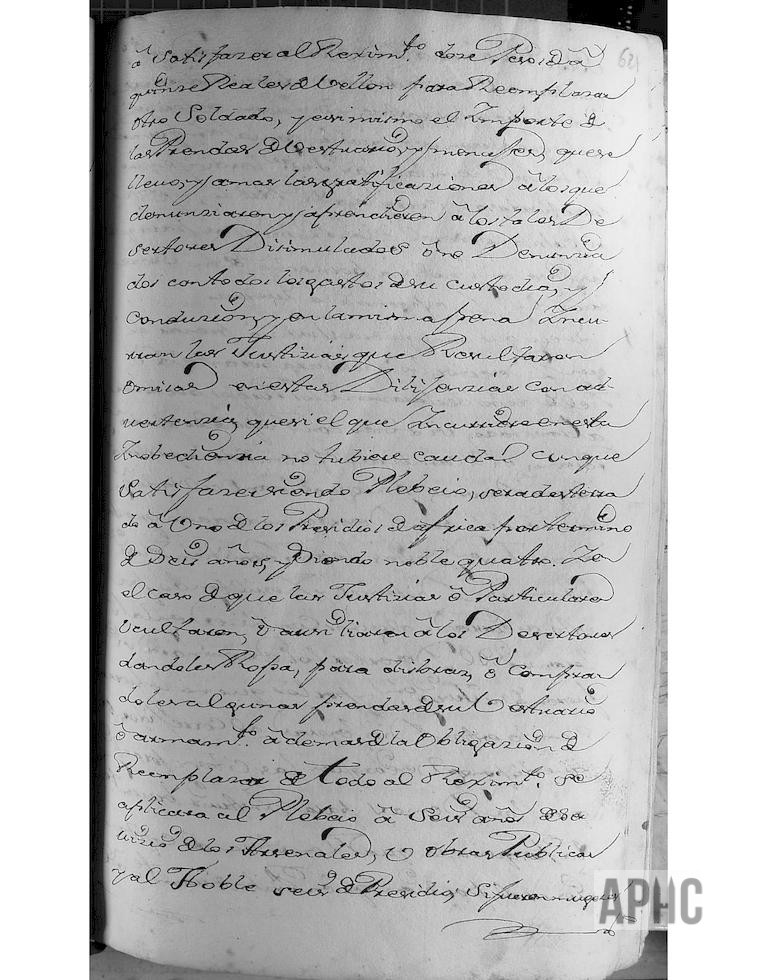 â Satisfazer al Reximto. doze Pesos de â
quinse Reales de Vellon para Reemplazar
otro Soldado, y asimismo el Importe de
las Prendas de Vestuario, y menuses, que se
llevo, y amas las gratificaziones â los que
denunziaren, y aprendieren â los tales De
sertores Disimulados ô no Denunzia
dos con todos los gastos de su custodia, y
Conduzion, y en la misma pena Incu-
rran las Justizias que Resultaren
Omisas en estas Dilijenzias con ad-
vertenzia, que si el que Incurriere en esta
Inobedienzia no tubiere caudal con que
Satisfazer siendo Plebeio, sera desterra
do â Uno de los Presidios de africa por termino
de Seis años, y Siendo noble quatro. En
el caso de que las Justizias ô Particulares
Ocultaren, ô ausiliaren â los Desertores
dandoles Ropa, para disfraz, ô Compran
doles algunas prendas de su Vestuario
ô armamto. â demas de la Obligazion de
Reemplazar de todo al Reximto. se
aplicara al Plebeio â Seis años de Se
rvizio de los Arsenales, U obras Publicas
y al Noble seis de Presidio, Si fueren mugeres
62
APHC